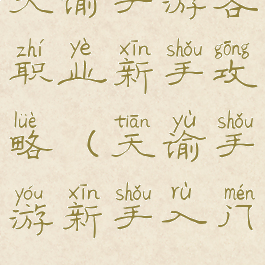 天谕手游各
zhí yè xīn shǒu gōng
职业新手攻
lüè tiān yù shǒu
略（天谕手
yóu xīn shǒu rù mén
游新手入门